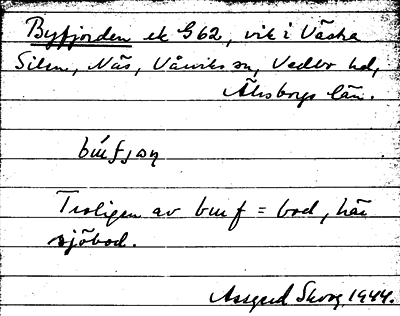 Byfjorden ek G62, vik i Västra
Silen, Näs, Vårviks sn, Vedbo hd,
Älvsborgs län.
Troligen av buf = bod, här
sjöbod.
Assgerd Skog 1944.